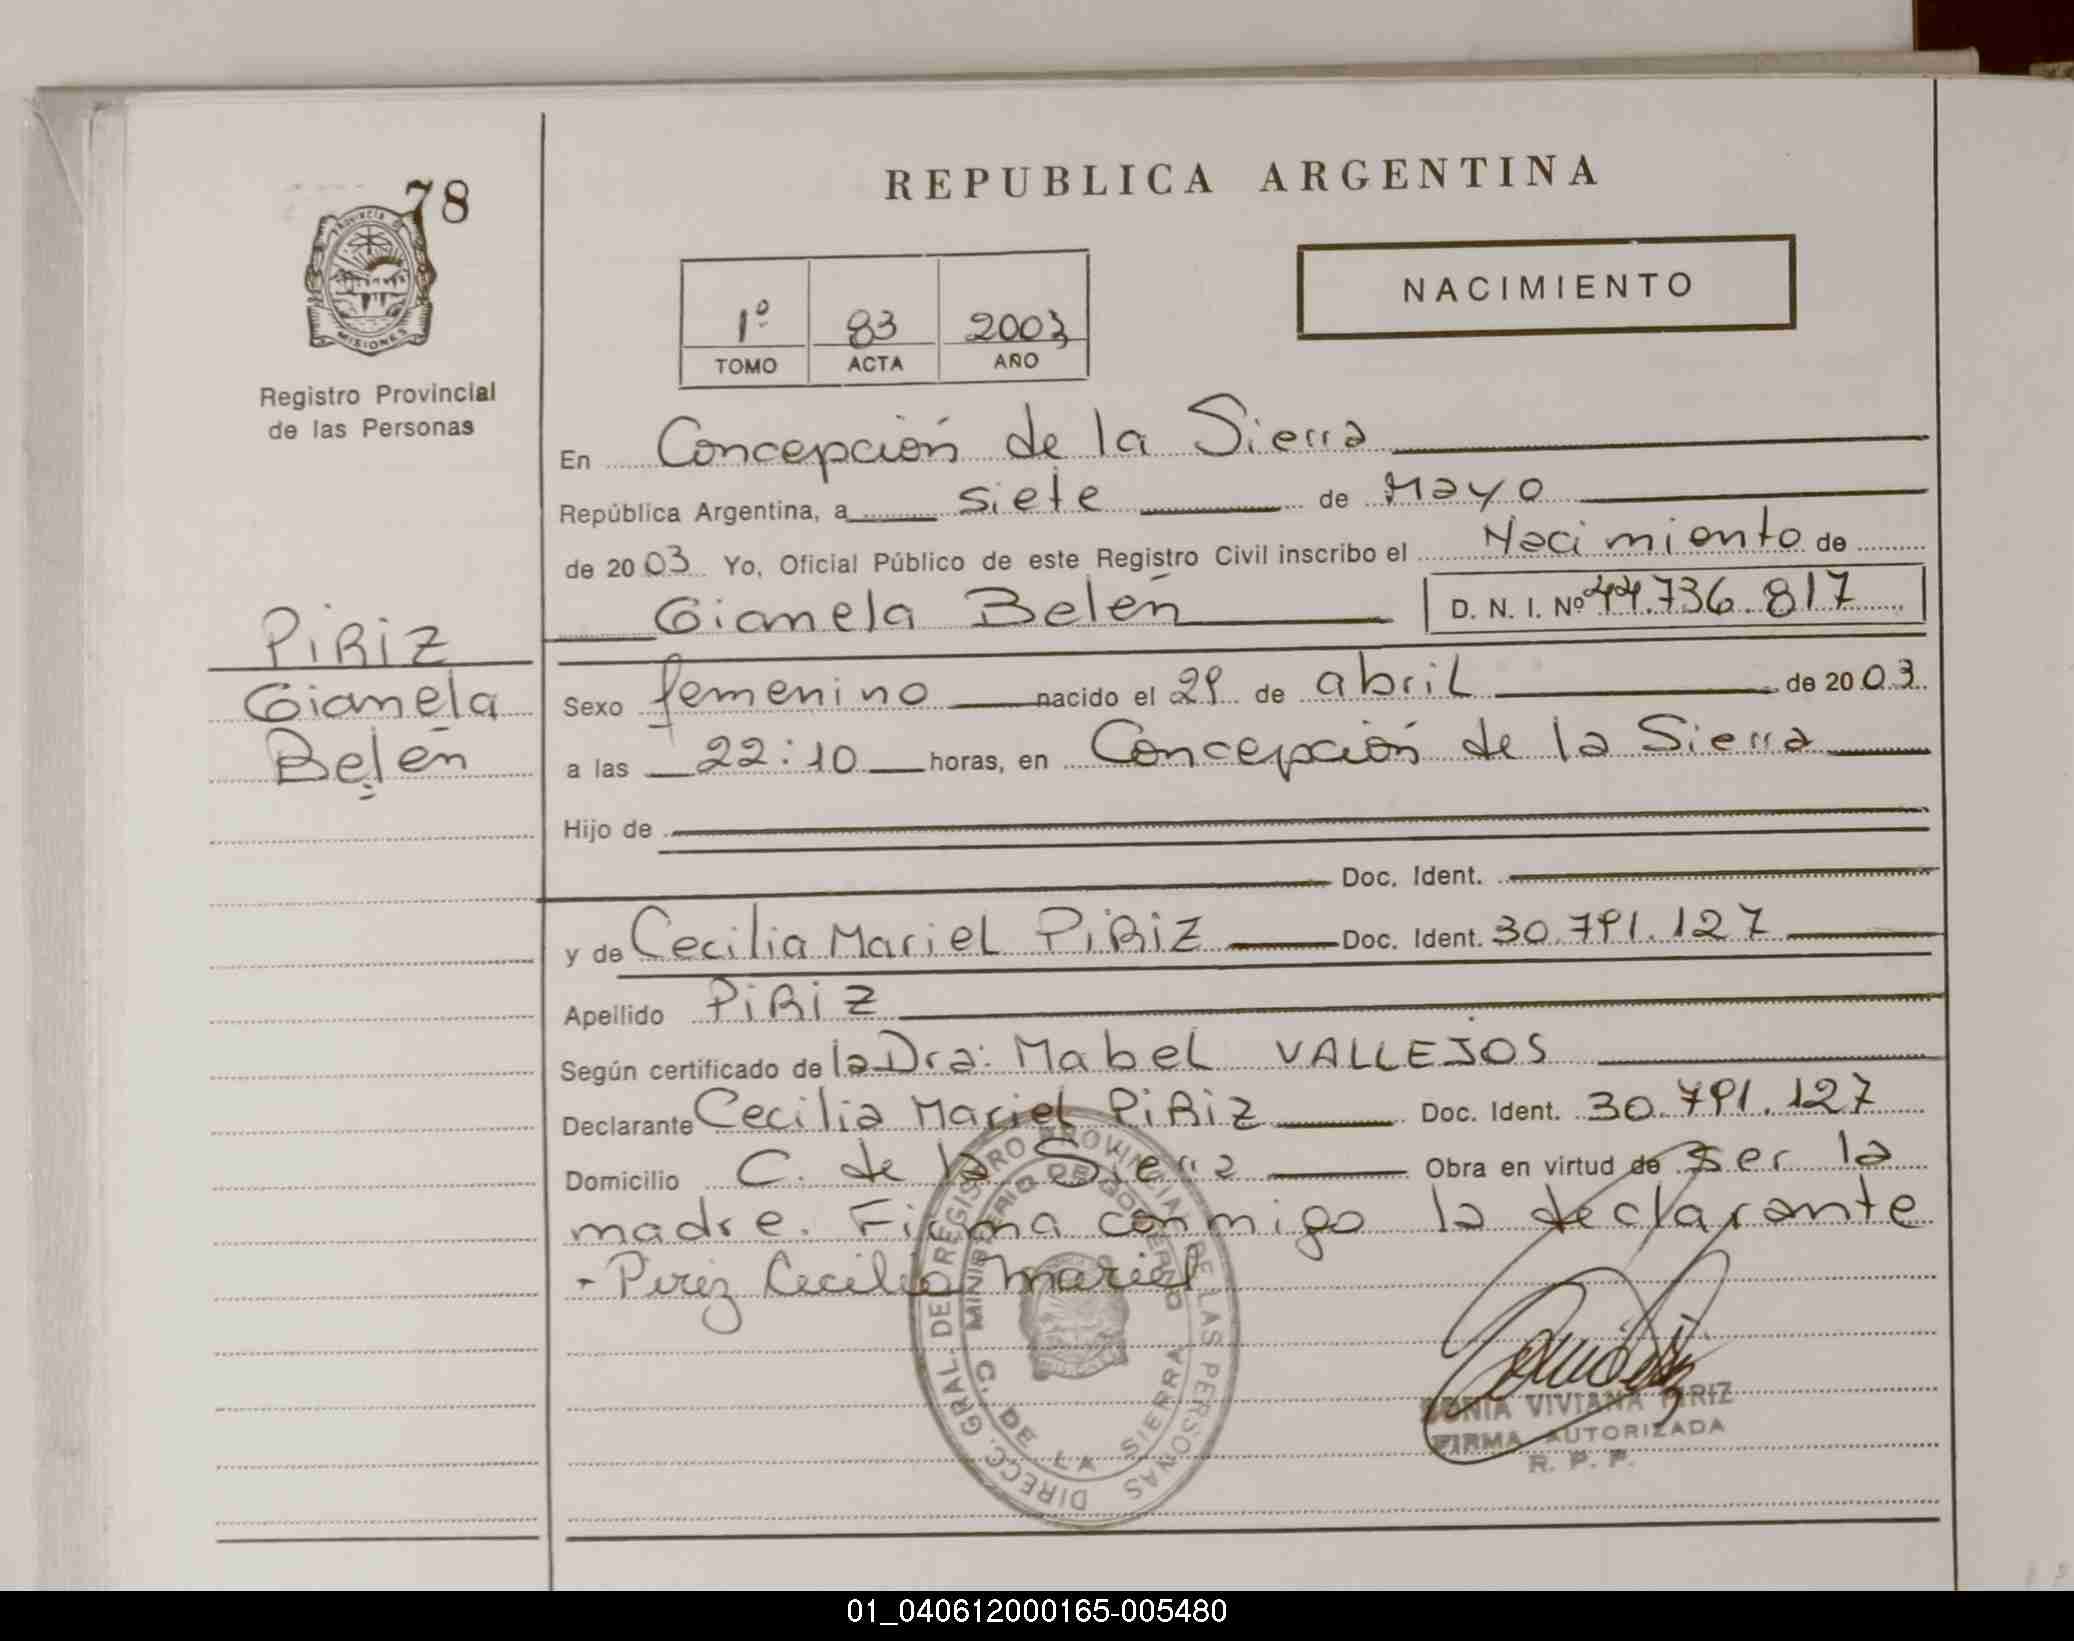 78
PROVINCIA DE
MISIONES
Registro Provincial
de las Personas
REPUBLICA ARGENTINA
NACIMIENTO
1º 83 2003
TOMO ACTA AÑO
En Concepción de la Sierra
República Argentina, a siete de Mayo
de 2003 Yo, Oficial Público de este Registro Civil inscribo el Nacimiento de
Gianela Belén D. N. I. Nº 44.736.817
PIRIZ
Gianela
Belén
Sexo femenino nacido el 29 de abril de 2003
a las 22:10 horas, en Concepción de la Sierra
Hijo de
Doc. Ident.
y de Cecilia Mariel PIRIZ Doc. Ident. 30.791.127
Apellido PIRIZ
Según certificado de la Dra: Mabel VALLEJOS
Declarante Cecilia Mariel PIRIZ Doc. Ident. 30.791.127
Domicilio C. de la Sierra Obra en virtud de ser la
madre. Firma conmigo la declarante
- Piriz Cecilia Mariel
DIRECC. GRAL. DE REGISTRO PROVINCIAL DE LAS PERSONAS
MINISTERIO DE GOBIERNO
C. DE LA SIERRA
SONIA VIVIANA PIRIZ
FIRMA AUTORIZADA
R. P. P.
01_040612000165-005480